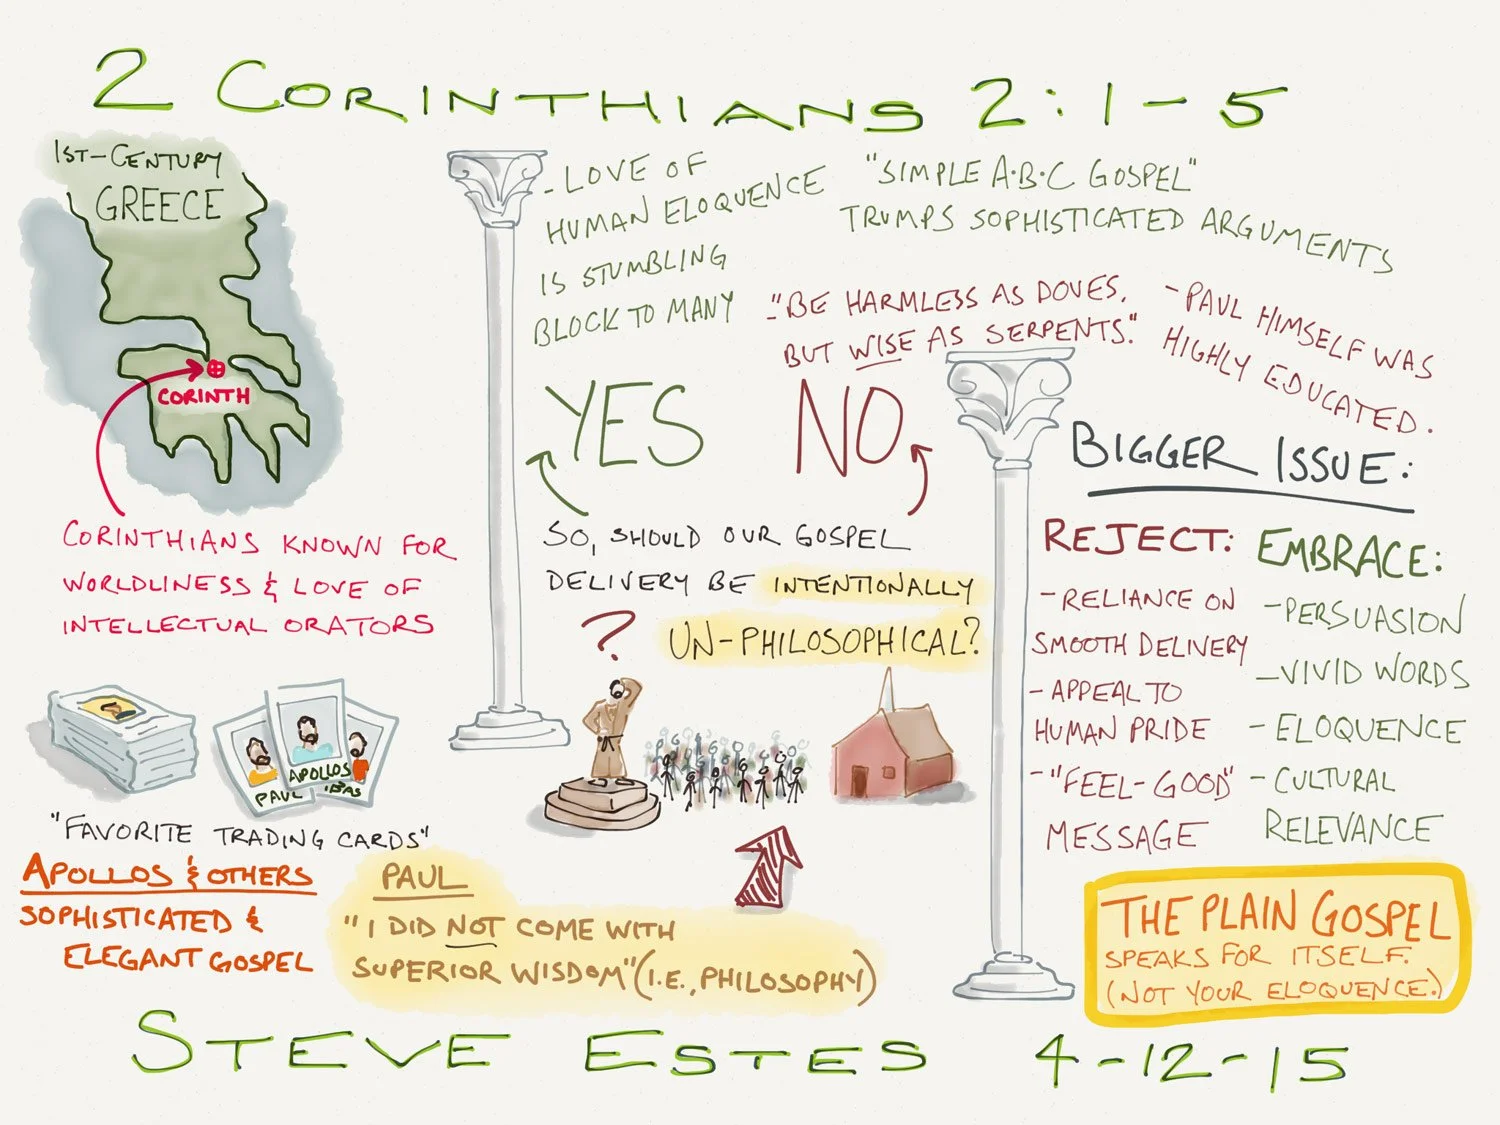 2 CORINTHIANS 2:1-5
1ST-CENTURY
GREECE
CORINTH
CORINTHIANS KNOWN FOR
WORLDLINESS & LOVE OF
INTELLECTUAL ORATORS
- LOVE OF
HUMAN ELOQUENCE
IS STUMBLING
BLOCK TO MANY
"SIMPLE A·B·C GOSPEL"
TRUMPS SOPHISTICATED ARGUMENTS
- "BE HARMLESS AS DOVES,
BUT WISE AS SERPENTS."
- PAUL HIMSELF WAS
HIGHLY EDUCATED.
YES
NO
SO, SHOULD OUR GOSPEL
DELIVERY BE INTENTIONALLY
UN-PHILOSOPHICAL?
?
BIGGER ISSUE:
REJECT:
- RELIANCE ON
SMOOTH DELIVERY
- APPEAL TO
HUMAN PRIDE
- "FEEL-GOOD"
MESSAGE
EMBRACE:
- PERSUASION
- VIVID WORDS
- ELOQUENCE
- CULTURAL
RELEVANCE
PAUL
APOLLOS
"FAVORITE TRADING CARDS"
APOLLOS & OTHERS
SOPHISTICATED &
ELEGANT GOSPEL
PAUL
"I DID NOT COME WITH
SUPERIOR WISDOM" (I.E., PHILOSOPHY)
THE PLAIN GOSPEL
SPEAKS FOR ITSELF.
(NOT YOUR ELOQUENCE.)
STEVE ESTES 4-12-15